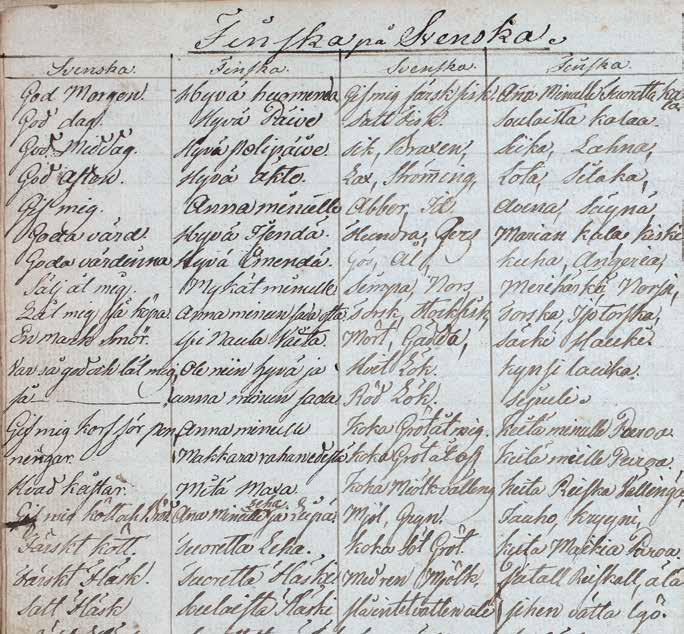 Finska på Svenska.
Svenska. Finska. Svenska. Finska.
God Morgon. Hyvä huomenda Gif mig färsk fisk. Anna Minulle Tuoretta kala
God dag. Hyvä Päive Salt fisk. Soulaista kalaa
God Middag. Hyvä Polipäive Sik, Braxen, Siika, Lahna,
God Afton. Hyvä äkto. Lax, Ströming, Lola, Silaka,
Gif mig. Anna minulle Abbor, Id Avena, Säynä
Goda värd. Hyvä Isendä. Hundra, Gers Marian kala kiski
Goda värdinna Hyvä Emendä. Gös, Ål, kuha, Angeria,
Sälj åt mig. My kät minulle Simpa, Nors, Merihärkä Norsi,
Låt mig få köpa Anna minun saa otta Torsk, Stockfisk, Torska,
En mark Smör. Yxi Naula Voita Mört, Gädda, Särki Haucki
Var så god och låt mig Ole niin hyvä ja Hvit Lök. kynsi laucka.
få anna minun sada Röd Lök. Sipuli.
Gif mig korf för pen Anna minulle Koka Gröt åt mig. Keitä minulle Puroa
ningar. Makkara rahan edestä koka Gröt åt oss keitä meille Puroa.
Hvad kostar. Mitä Maxa Koka Miölkvälling Keitä Reiska Vällingä,
Gif mig kött och Bröd Ana minulle Leha ja Leipä Mjöl, Gryn. Jauho, kryyni,
Färskt kött. Tuoretta Leha. Koka Söt Gröt. Keitä Makia Puroa.
Färskt Fläsk. Tuoretta Fläski Med ren Mjölk
Salt Fläsk Soulaista Fläski slå intet vatten uti sihen vättä Lyö.